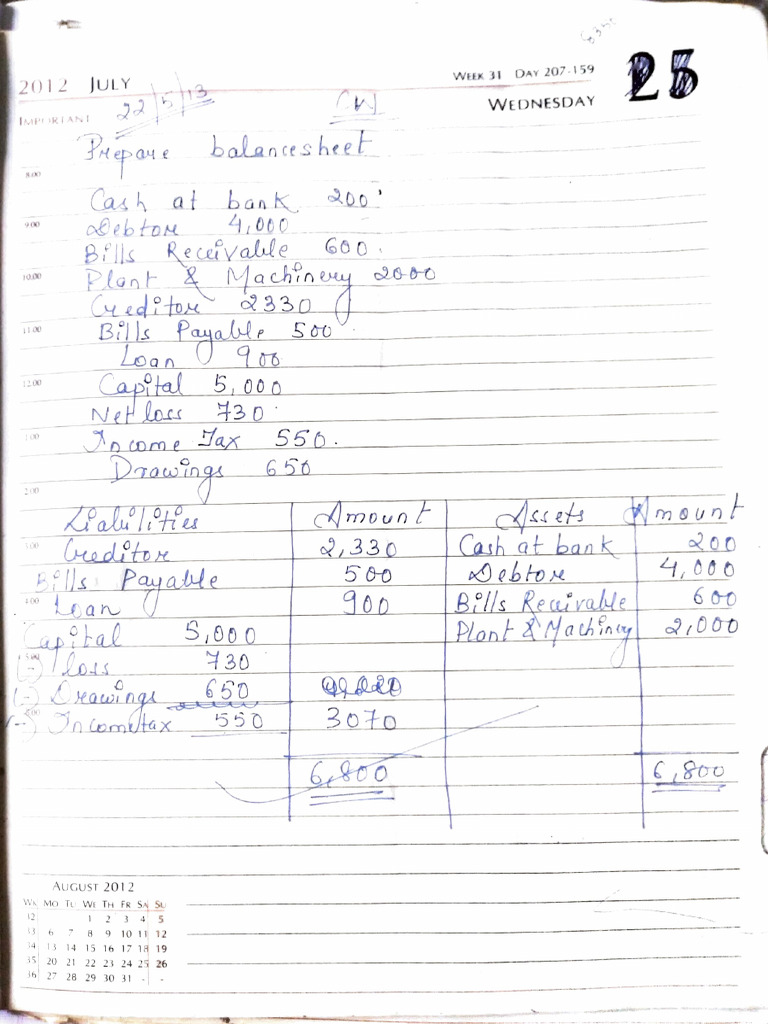 2012 JULY
WEEK 31 DAY 207-159
WEDNESDAY
25
IMPORTANT
22/5/13
CW
Prepare balancesheet
8.00
Cash at bank 200
9.00
Debtors 4,000
Bills Receivable 600.
10.00
Plant & Machinery 2000
Creditors 2330
11.00
Bills Payable 500
Loan 900
12.00
Capital 5,000
Net loss 730
1.00
Income Tax 550.
Drawings 650
2.00
Liabilities Amount Assets Amount
3.00
Creditors 2,330 Cash at bank 200
Bills Payable 500 Debtors 4,000
4.00
Loan 900 Bills Receivable 600
Capital 5,000 Plant & Machinery 2,000
5.00
(-) loss 730
(-) Drawings 650
(-) Income tax 550 3070
6,800 6,800
AUGUST 2012
WK MO TU WE TH FR SA SU
32 1 2 3 4 5
33 6 7 8 9 10 11 12
34 13 14 15 16 17 18 19
35 20 21 22 23 24 25 26
36 27 28 29 30 31 - -